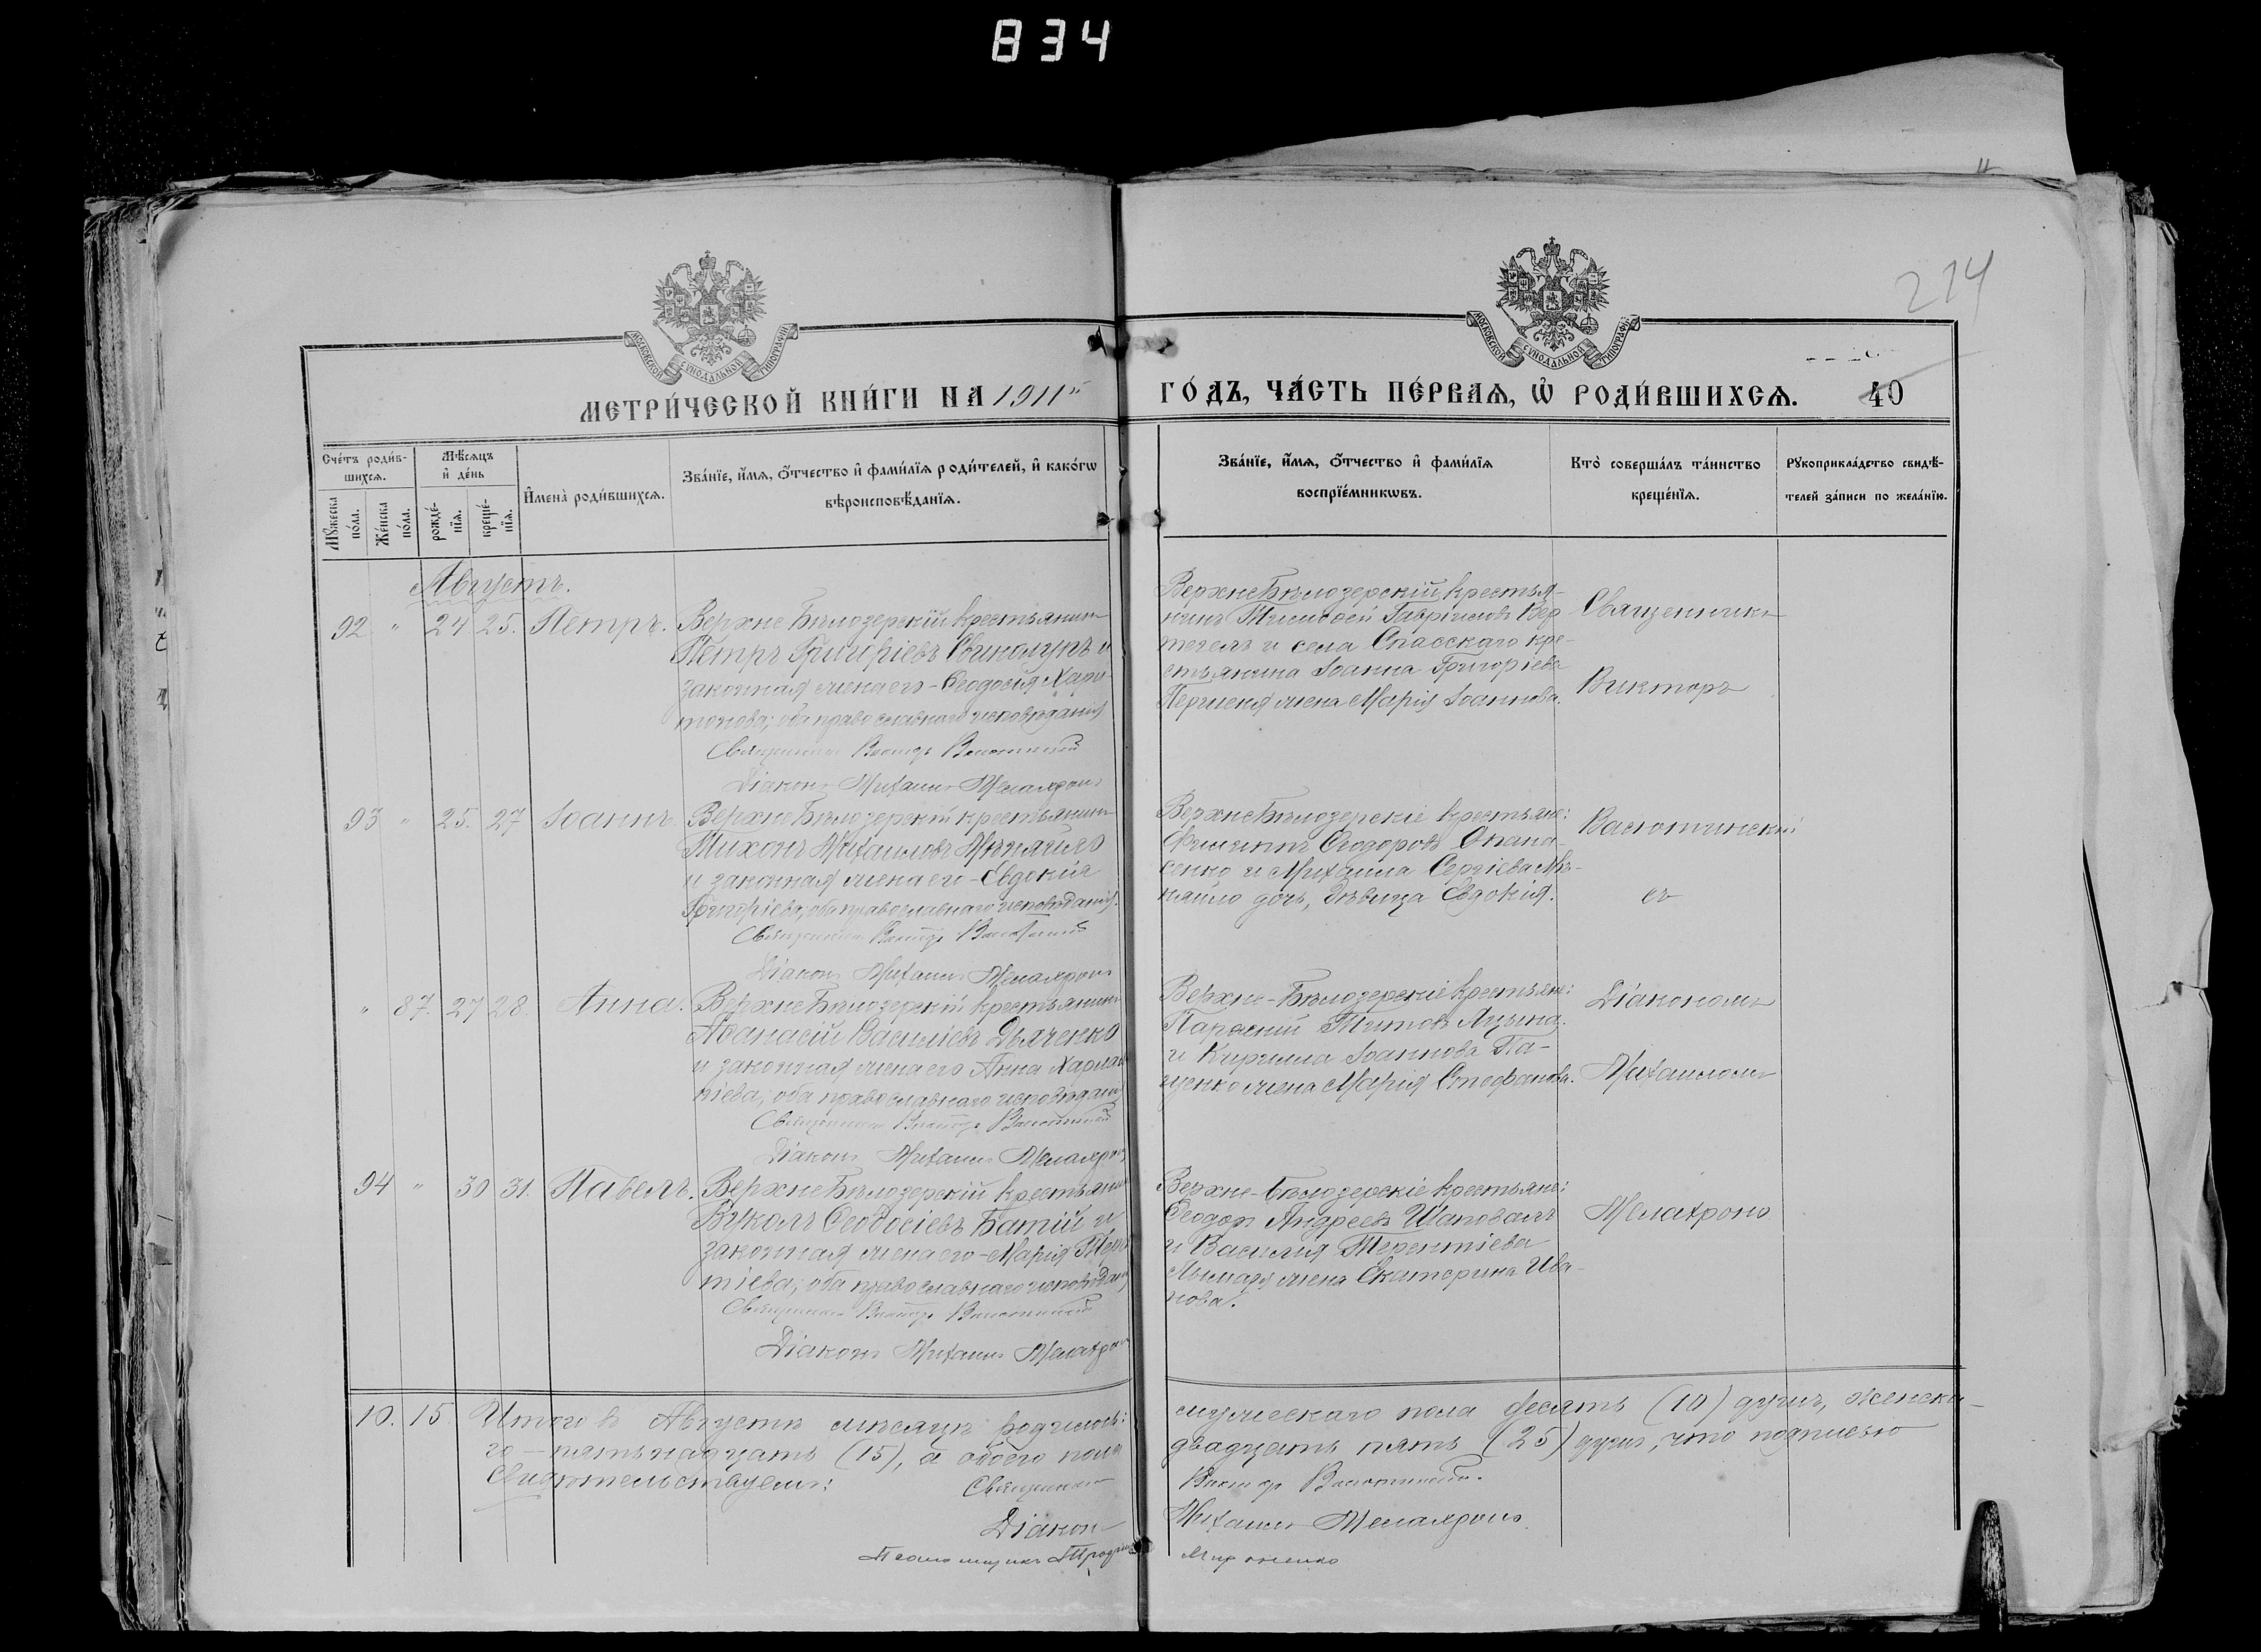 834
274
МОСКОВСКОЙ СѴНОДАЛЬНОЙ ТИПОГРАФІИ
МОСКОВСКОЙ СѴНОДАЛЬНОЙ ТИПОГРАФІИ
МЕТРИ́ЧЕСКОЙ КНИ́ГИ НА 1911й
ГО́ДЪ, ЧА́СТЬ ПЕ́РВАѦ, Ѡ҆ РОДИ́ВШИХСѦ.
40
Сче́тъ роди́в-
шихсѧ.
Мꙋжеска по́ла.
Же́нска по́ла.
Мѣ́сѧцъ
и҆ де́нь
рожде́-
нїѧ.
креще́-
нїѧ.
И҆мена̀ роди́вшихсѧ.
Зва́нїе, и҆́мѧ, ѻ҆́тчество и҆ фами́лїѧ роди́телей, и҆ како́гѡ
вѣроисповѣ́данїѧ.
Зва́нїе, и҆́мѧ, ѻ҆́тчество и҆ фами́лїѧ
воспрїе́мникѡвъ.
Кто̀ соверша́лъ та́инство
креще́нїѧ.
Рꙋкоприкла́дство свидѣ́-
телей за́писи по жела́нїю.
Августъ.
92 " 24 25. Петръ.
Верхне Бѣлозерскій крестьянинъ
Петръ Григоріевъ Свинолупъ и
законная жена его - Ѳеодосія Хари-
тонова; оба православнаго исповѣданія
Священникъ Викторъ Васютинскій
Діаконъ Михаилъ Мелахроно
Верхне Бѣлозерскій крестья-
нинъ Тимоѳей Гавріиловъ Вер
тегелъ и села Спасскаго кре-
стьянина Іоанна Григоріева
жена Марія Іоаннова.
Священникъ
Викторъ
93 " 25. 27 Іоаннъ
Верхне Бѣлозерскій крестьянинъ
Тихонъ Михаиловъ Мѣняйло
и законная жена его - Евдокія
Григоріева, оба православнаго исповѣданія.
Священникъ Викторъ Васютинскій
Діаконъ Михаилъ Мелахроно
Верхне Бѣлозерскіе крестьяне:
Филиппъ Ѳеодоровъ Опана-
сенко и Михаила Сергіева Мѣ-
няйло дочь, дѣвица Евдокія.
Васютинскій
съ
" 87. 27 28. Анна.
Верхне Бѣлозерскій крестьянинъ
Аѳанасій Василіевъ Дьяченко
и законная жена его Анна Харлам
піева, оба православнаго исповѣданія
Священникъ Викторъ Васютинскій
Діаконъ Михаилъ Мелахроно
Верхне-Бѣлозерскіе крестьяне:
Титовъ
и Кирилла Іоаннова Па-
щенко жена Марія Стефанова.
Діакономъ
Михаиломъ
94 " 30 31. Павелъ.
Верхне Бѣлозерскій крестьянинъ
Вуколъ Ѳеодосіевъ Батій и
законная жена его - Марія Терен
тіева; оба православнаго исповѣданія
Священникъ Викторъ Васютинскій
Діаконъ Михаилъ Мелахроно
Верхне-Бѣлозерскіе крестьяне:
Ѳеодоръ Андреевъ Шаповалъ
и Василія Терентіева
жена Екатерина Ива-
нова.
Мелахроно
10. 15. Итого въ Августѣ мѣсяцѣ родилось:
мужескаго пола десять (10) душъ, женска-
го - пятьнадцать (15), а обоего пола
двадцать пять (25) душъ, что подписью
свидѣтельствуемъ: Священникъ
Викторъ Васютинскій.
Діаконъ
Михаилъ Мелахроно
Псаломщикъ
Мироненко